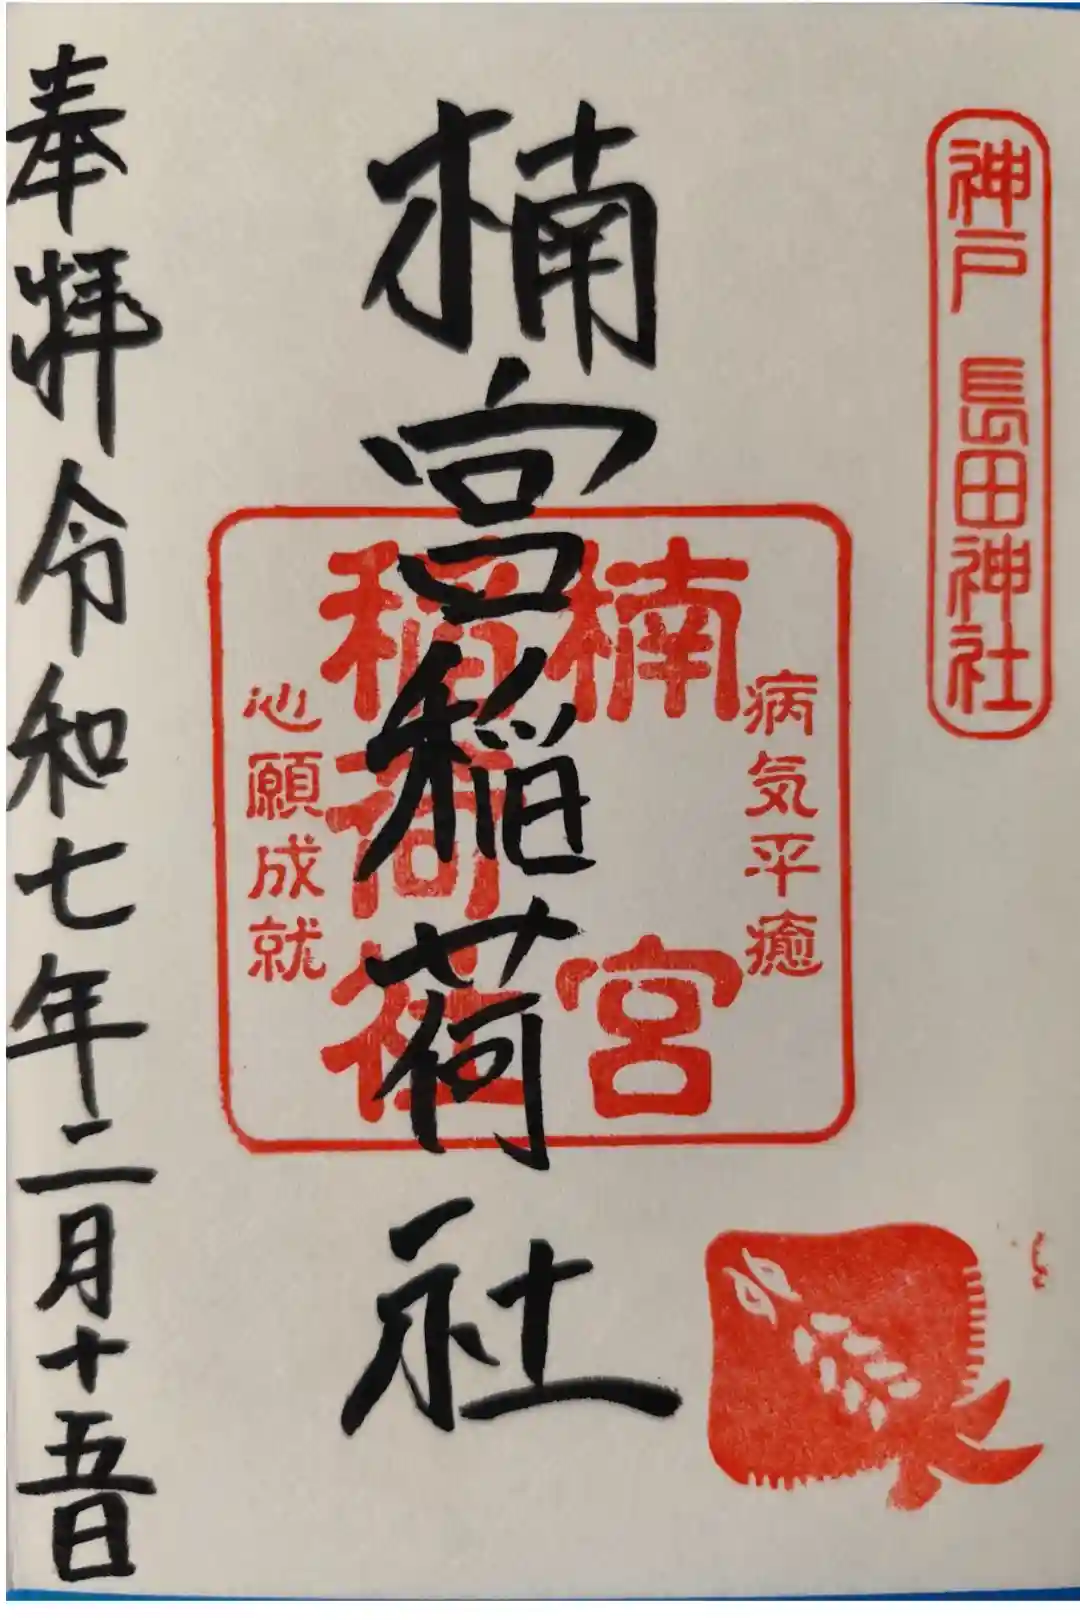 神戸 長田神社
病気平癒
楠宮
稲荷社
心願成就
楠宮稲荷社
奉拝 令和七年二月十五日